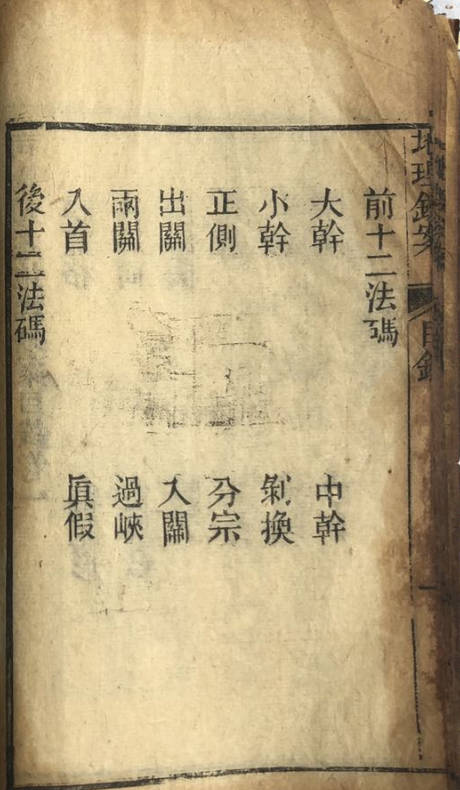 地理案 目錄 一
前十二法碼
大幹 中幹
小幹 剝換
正側 分宗
出關 入關
兩關 過峽
入首 眞假
後十二法碼